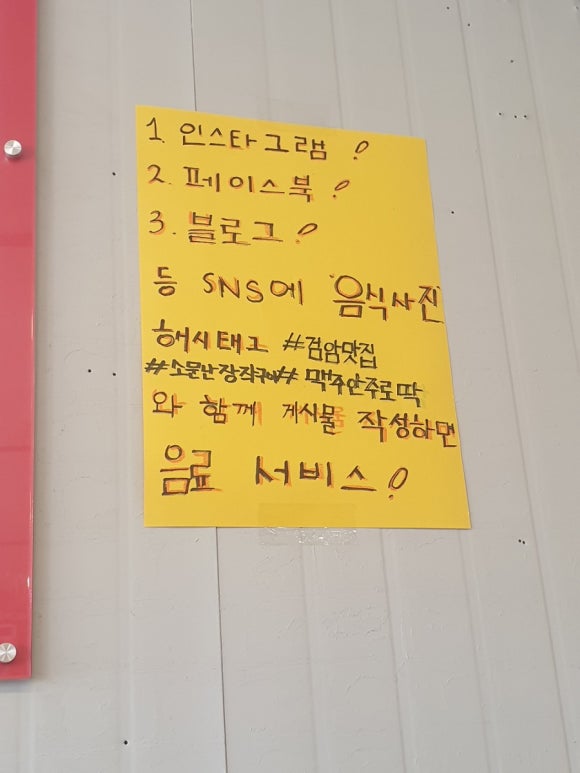 1. 인스타그램!
2. 페이스북!
3. 블로그!
등 SNS에 '음식사진'
해시태그 #검암맛집
#소문난장작구이# 맥주안주로딱
와 함께 게시물 작성하면
음료 서비스!